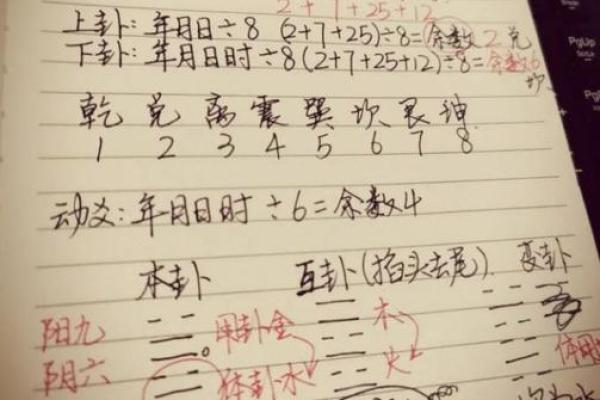 2+7+25+12
上卦：年月日÷8 (2+7+25)÷8=余数2兑
下卦：年月日时÷8(2+7+25+12)÷8=余数6
坎
乾 兑 离 震 巽 坎 艮 坤
1 2 3 4 5 6 7 8
动爻：年月日时÷6=余数4
本卦 互卦(掐头去尾) 变卦
阳九 用卦金 木
阴六 体卦水 火 体用
PgUp